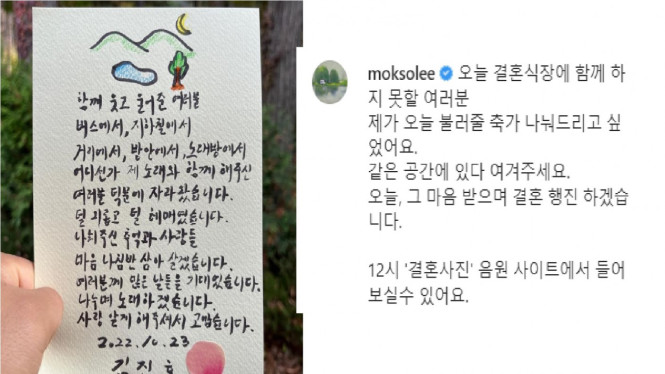 함께 웃고 울어준 여러분
버스에서, 지하철에서
거리에서, 방안에서, 노래방에서
어디선가 제 노래와 함께 해주신
여러분 덕분에 자라왔습니다.
덜 괴롭고 덜 헤매였습니다.
나눠주신 추억과 사랑들
마음 나침반 삼아 살겠습니다.
여러분께 받은 날들을 기대있습니다.
나누며 노래하겠습니다.
사랑 알게 해주셔서 고맙습니다.
2022.10.23
김진호
moksolee 오늘 결혼식장에 함께 하
지 못할 여러분
제가 오늘 불러줄 축가 나눠드리고 싶
었어요.
같은 공간에 있다 여겨주세요.
오늘, 그 마음 받으며 결혼 행진 하겠습
니다.
12시 '결혼사진' 음원 사이트에서 들어
보실수 있어요.